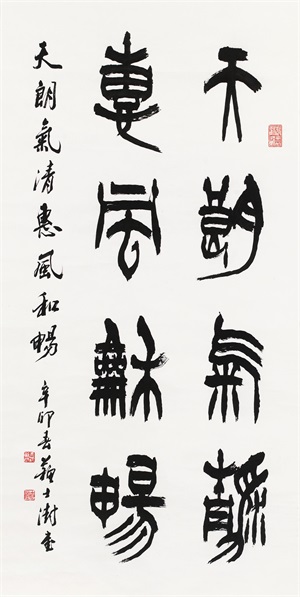 天朗氣清
惠風龢暢
天朗氣清惠風和暢
辛卯春蘇士澍書